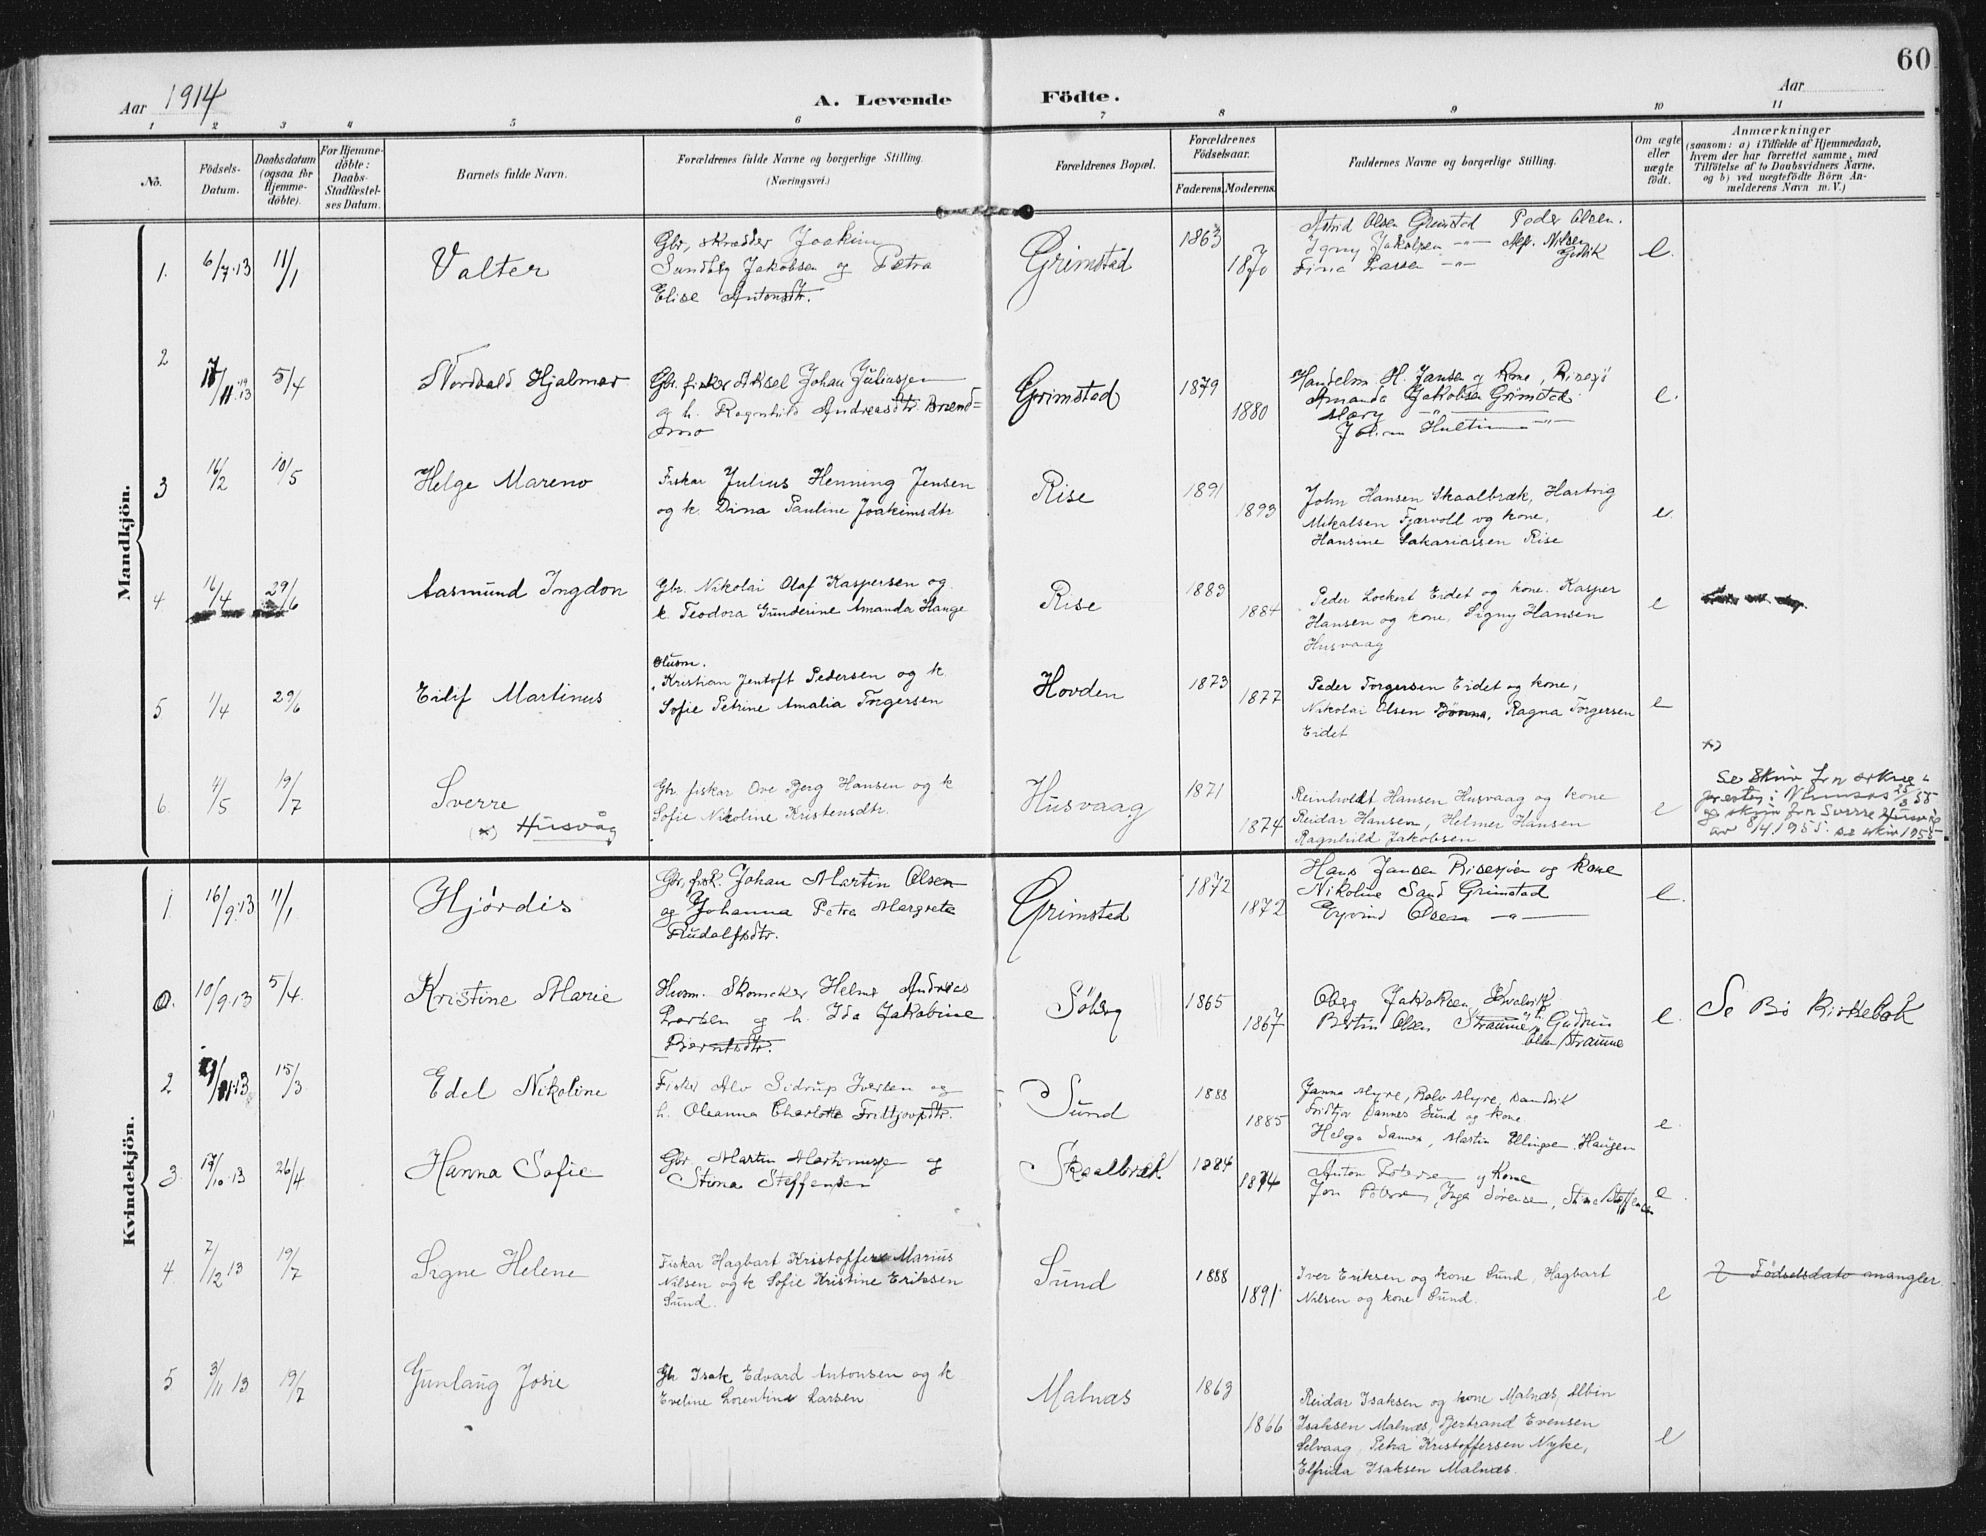 60
Aar 1914
A. Levende Födte.
Aar
1 2 3 4 5 6 7 8 9 10 11
No.
Födsels-Datum.
Daabsdatum (ogsaa for Hjemme-döbte).
For Hjemme-döbte: Daabs-Stadfæstel-ses Datum.
Barnets fulde Navn.
Forældrenes fulde Navne og borgerlige Stilling.
(Næringsvei.)
Forældrenes Bopæl.
Forældrenes Födselsaar.
Faderens. Moderens.
Faddernes Navne og borgerlige Stilling.
Om ægte eller uægte födt.
Anmærkninger
(saasom: a) i Tilfælde af Hjemmedaab,
hvem der har forrettet samme, med
Tilföielse af to Daabsvidners Navne,
og b) ved uægtefödte Börn An-
melderens Navn m. V.)
Mandkjön.
1. 6/7.13 11/1 Valter
Gbr, skrædder Joakim
Sundby Jakobsen og Petra
Elise Antonsdtr.
Grimstad
1863
1870
Astrid Olsen Grimstad Peder Olsen.
Jakobsen -"- Alf. Nilsen
Fina Larsen -"- Gidvik
e.
2 5/4 Nordvald Hjalmar
Gbr. fisker Aksel Johan Juliussen
og h. Ragnhild Andreasdtr Brænd=
mo
Grimstad
1879
1880
H. Jansen og Kone,
Amanda Jakobsen Grimstad
Mary -"-
Hultin -"-
e.
3 16/2 10/5 Helge Mareno
Fiskar Julius Henning Jensen
og k. Dina Pauline Joakimsdtr
Rise
1891
1893
John Hansen Skaalbræk, Hartvig
Mikalsen Fjærvold og kone,
Hansine Sakariassen Rise
e.
4. 16/4 29/6 Aasmund Ingdon
Gbr. Nikolai Olaf Kaspersen og
k. Teodora Gunderine Amanda Hange
Rise
1883
1884
Peder Lockert Eidet og kone. Kasper
Hansen og kone, Signy Hansen
Husvaag
e
5 1/4 29/6 Eilif Martinus
Husm.
Kristian Jentoft Pedersen og k
Sofie Petrine Amalia Torgersen
Hovden
1873
1877
Peder Torgersen Eidet og kone,
Nikolai Olsen Bønna, Ragna Torgersen
Eidet
e
6. 4/5 19/7 Sverre
(x) Husvåg
Gbr fiskar Ove Berg Hansen og k
Sofie Nikoline Kristensdtr.
Husvaag
1871
1874
Reinholdt Hansen Husvaag og kone
Reidar Hansen, Helmer Hansen
Ragnhild Jakobsen
e
x)
Se skriv fra sokne-
presten i 25/3 55
og skriv fra Sverre Husvåg
av 8/4 1955. se skriv 1955
Kvindekjön.
1. 16/9.13 11/1 Hjørdis
Gbr, fisk. Johan Martin Olsen
og Johanna Petra Margrete
Rudolfsdtr.
Grimstad
1872
1872
Hans Jansen Risesjøen og kone
Nikoline Sand Grimstad
Eyvind Olsen -"-
e.
0. 10/9.13 5/4. Kristine Marie
Husm. Skomaker Helmer Andreas
Larsen og h. Ida Jakobine
Berntsdtr.
Søberg
1865
1867
Oberg Jakobsen
Bertin Olsen Straume, Gudrun
Olsen Straume
e.
Se Bø Kirkebok
2 15/3 Edel Nikoline
Fisker Alv Sidrup Iversen og
h. Oleanna Charlotte Fritjovsdtr.
Sund
1888
1885
Janna Myre, Rolv Myre, Sandvik
Fridtjov Hannes Sund og kone
Helga Sannes, Martin Ellingsen Haugen
e.
3. 17/10.13 26/4 Hanna Sofie
Gbr Martin Martinussen og
Stina Steffensen
Skaalbræk
1884
Anton Petersen og Kone
Petersen, Inga Sørensen, Stina Steffensen
e
4. 7/12 13 19/7 Signe Helene
Fiskar Hagbart Kristoffer Marius
Nilsen og k Sofie Kristine Eriksen
Sund.
Sund
1888
1891.
Iver Eriksen og kone Sund, Hagbart
Nilsen og kone Sund.
e
? Fødselsdato mangler.
5 3/11 13 19/7 Gunlaug Josie
Gbr Isak Edvard Antonsen og k
Eveline Lorentine Larsen
Malnæs
1863
1866
Reidar Isaksen og kone Malnæs, Albin
Isaksen Malnæs, Bertrand Evensen
Selvaag, Petra Kristoffersen Nyke,
Elfrida Isaksen Malnæs.
e